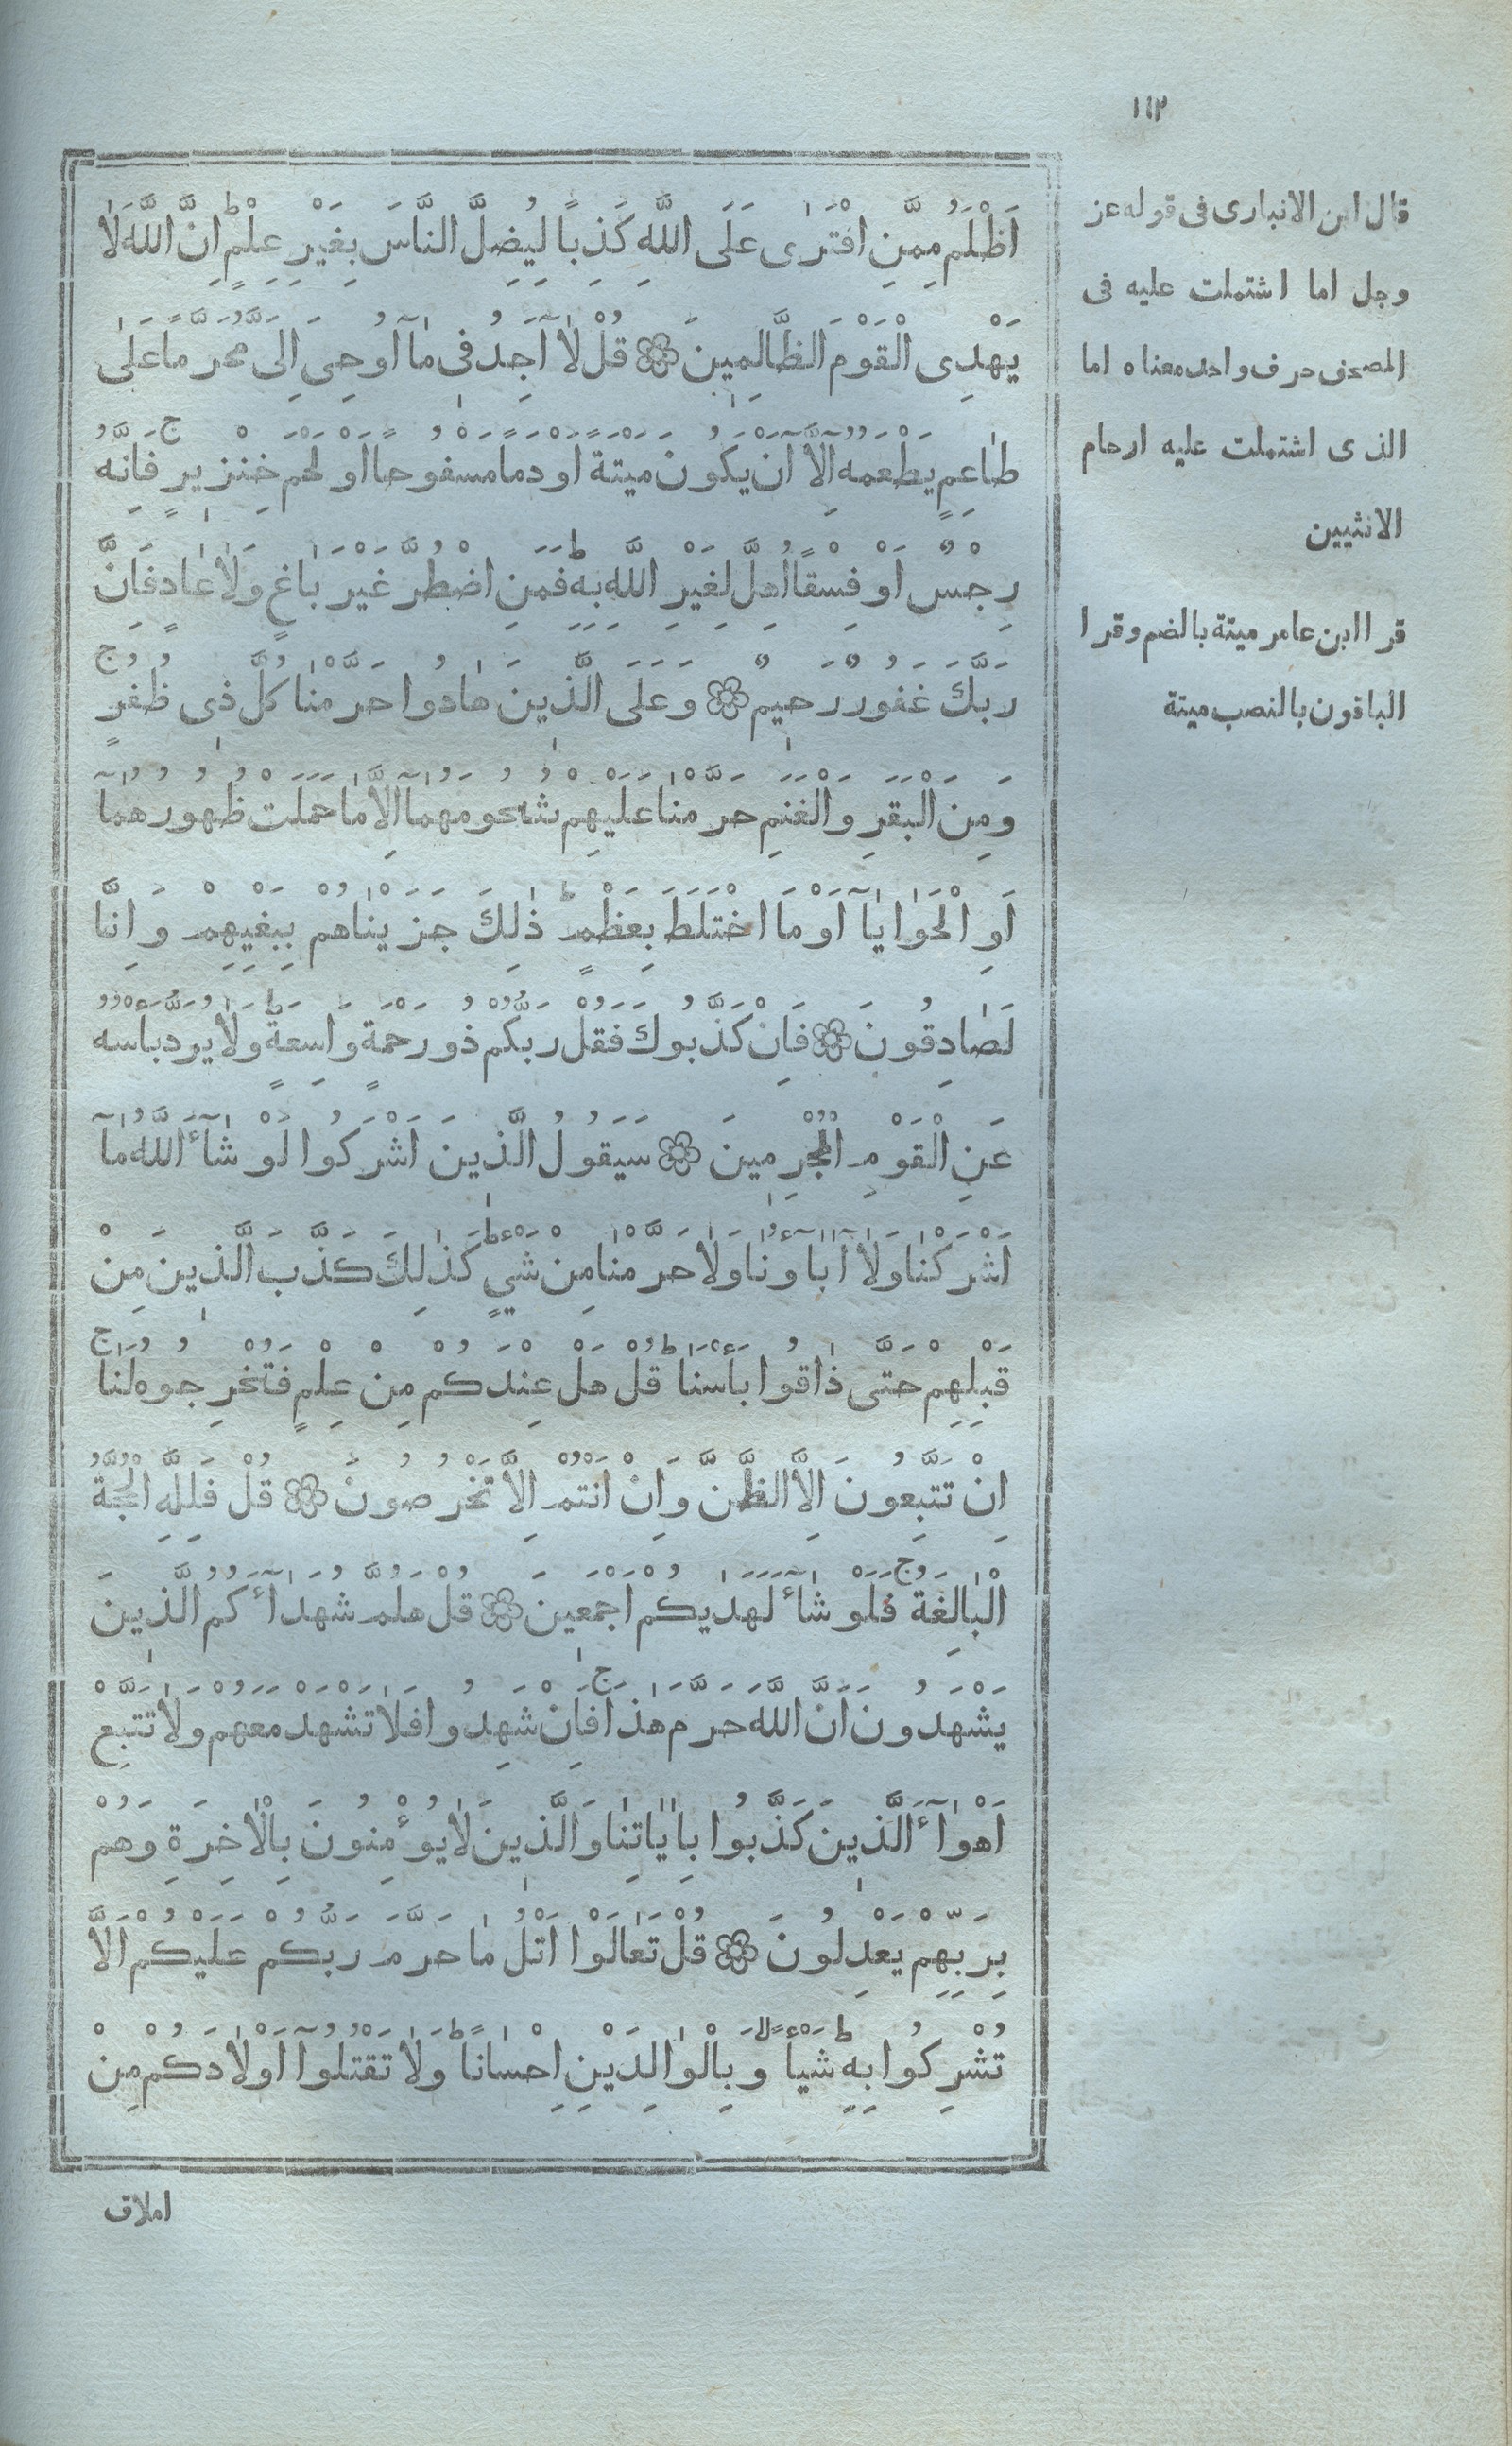 ١١٢
اَظْلَمُ مِمَّنِ افْتَرٰى عَلَى اللَّهِ كَذِبًا لِيُضِلَّ النَّاسَ بِغَيْرِ عِلْمٍ ط اِنَّ اللَّهَ لَا
يَهْدِى الْقَوْمَ الظَّالِمِينَ ۞ قُلْ لَٓا اَجِدُ فِى مَٓا اُوحِىَ اِلَىَّ مُحَرَّمًا عَلٰى
طَاعِمٍ يَطْعَمُهُٓ اِلَّٓا اَنْ يَكُونَ مَيْتَةً اَوْ دَمًا مَسْفُوحًا اَوْ لَحْمَ خِنْزِيرٍ فَاِنَّهُ ج
رِجْسٌ اَوْ فِسْقًا اُهِلَّ لِغَيْرِ اللَّهِ بِهِ ط فَمَنِ اضْطُرَّ غَيْرَ بَاغٍ وَلَا عَادٍ فَاِنَّ
رَبَّكَ غَفُورٌ رَحِيمٌ ۞ وَعَلَى الَّذِينَ هَادُوا حَرَّمْنَا كُلَّ ذِى ظُفُرٍ ج
وَمِنَ الْبَقَرِ وَالْغَنَمِ حَرَّمْنَا عَلَيْهِمْ شُحُومَهُمَٓا اِلَّا مَا حَمَلَتْ ظُهُورُهُمَٓا
اَوِ الْحَوَايَٓا اَوْ مَا اخْتَلَطَ بِعَظْمٍ ط ذٰلِكَ جَزَيْنَاهُمْ بِبَغْيِهِمْ وَاِنَّا
لَصَادِقُونَ ۞ فَاِنْ كَذَّبُوكَ فَقُلْ رَبُّكُمْ ذُو رَحْمَةٍ وَاسِعَةٍ ط وَلَا يُرَدُّ بَأْسُهُ
عَنِ الْقَوْمِ الْمُجْرِمِينَ ۞ سَيَقُولُ الَّذِينَ اَشْرَكُوا لَوْ شَٓاءَ اللَّهُ مَٓا
اَشْرَكْنَا وَلَٓا اٰبَٓاؤُنَا وَلَا حَرَّمْنَا مِنْ شَىْءٍ ط كَذٰلِكَ كَذَّبَ الَّذِينَ مِنْ
قَبْلِهِمْ حَتَّى ذَاقُوا بَأْسَنَا ط قُلْ هَلْ عِنْدَكُمْ مِنْ عِلْمٍ فَتُخْرِجُوهُ لَنَا ج
اِنْ تَتَّبِعُونَ اِلَّا الظَّنَّ وَاِنْ اَنْتُمْ اِلَّا تَخْرُصُونَ ۞ قُلْ فَلِلَّهِ الْحُجَّةُ
الْبَالِغَةُ ج فَلَوْ شَٓاءَ لَهَدٰيكُمْ اَجْمَعِينَ ۞ قُلْ هَلُمَّ شُهَدَٓاءَكُمُ الَّذِينَ
يَشْهَدُونَ اَنَّ اللَّهَ حَرَّمَ هٰذَا ج فَاِنْ شَهِدُوا فَلَا تَشْهَدْ مَعَهُمْ وَلَا تَتَّبِعْ
اَهْوَٓاءَ الَّذِينَ كَذَّبُوا بِاٰيَاتِنَا وَالَّذِينَ لَا يُؤْمِنُونَ بِالْاٰخِرَةِ وَهُمْ
بِرَبِّهِمْ يَعْدِلُونَ ۞ قُلْ تَعَالَوْا اَتْلُ مَا حَرَّمَ رَبُّكُمْ عَلَيْكُمْ اَلَّا
تُشْرِكُوا بِهِ ط شَيْأً لا وَبِالْوَالِدَيْنِ اِحْسَانًا ط وَلَا تَقْتُلُوٓا اَوْلَادَكُمْ مِنْ
املاق
قال ابن الانبارى فى قوله عز
وجل اما اشتملت عليه فى
المصحف حرف واحد معناه اما
الذى اشتملت عليه ارحام
الانثيين
قرا ابن عامر ميتة بالضم وقرا
الباقون بالنصب ميتة